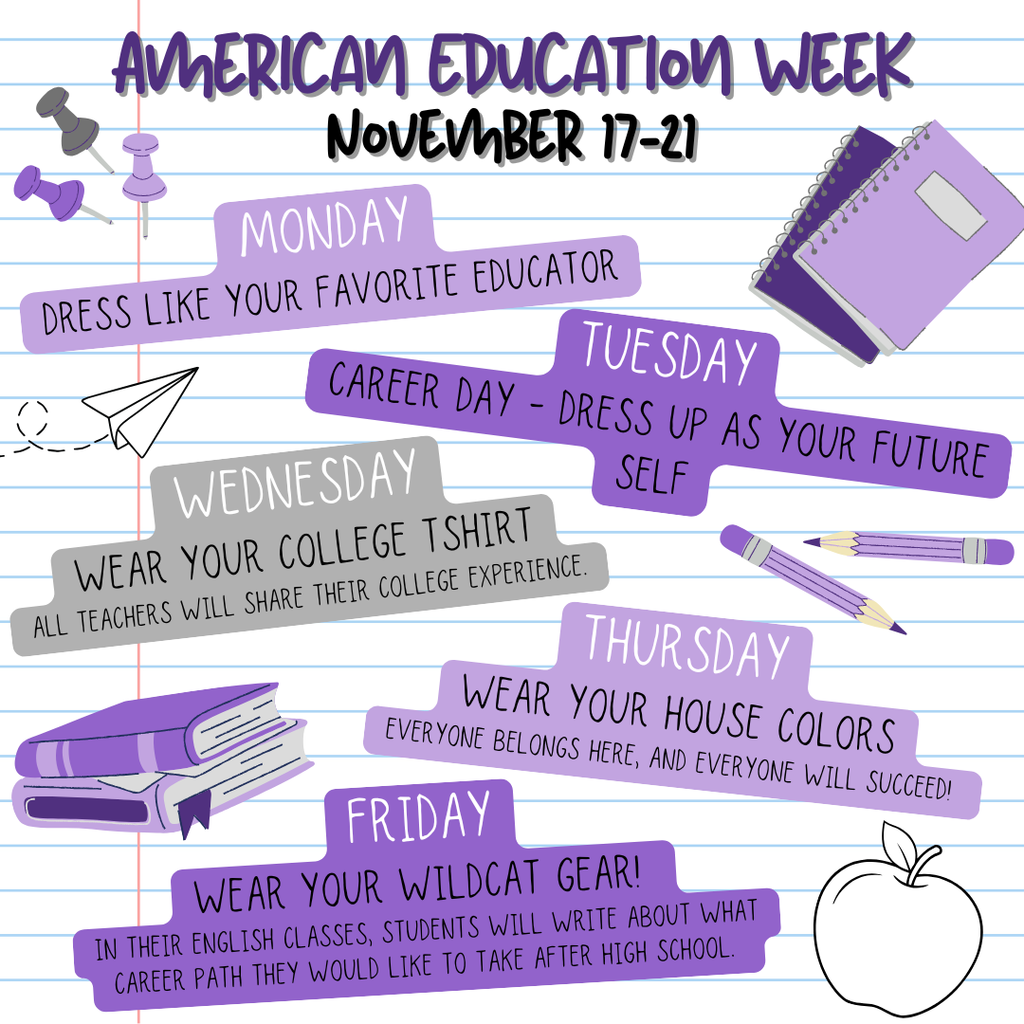 AMERICAN EDUCATION WEEK
NOVEMBER 17-21
MONDAY
DRESS LIKE YOUR FAVORITE EDUCATOR
TUESDAY
CAREER DAY - DRESS UP AS YOUR FUTURE
SELF
WEDNESDAY
WEAR YOUR COLLEGE TSHIRT
ALL TEACHERS WILL SHARE THEIR COLLEGE EXPERIENCE.
THURSDAY
WEAR YOUR HOUSE COLORS
EVERYONE BELONGS HERE, AND EVERYONE WILL SUCCEED!
FRIDAY
WEAR YOUR WILDCAT GEAR!
IN THEIR ENGLISH CLASSES, STUDENTS WILL WRITE ABOUT WHAT
CAREER PATH THEY WOULD LIKE TO TAKE AFTER HIGH SCHOOL.